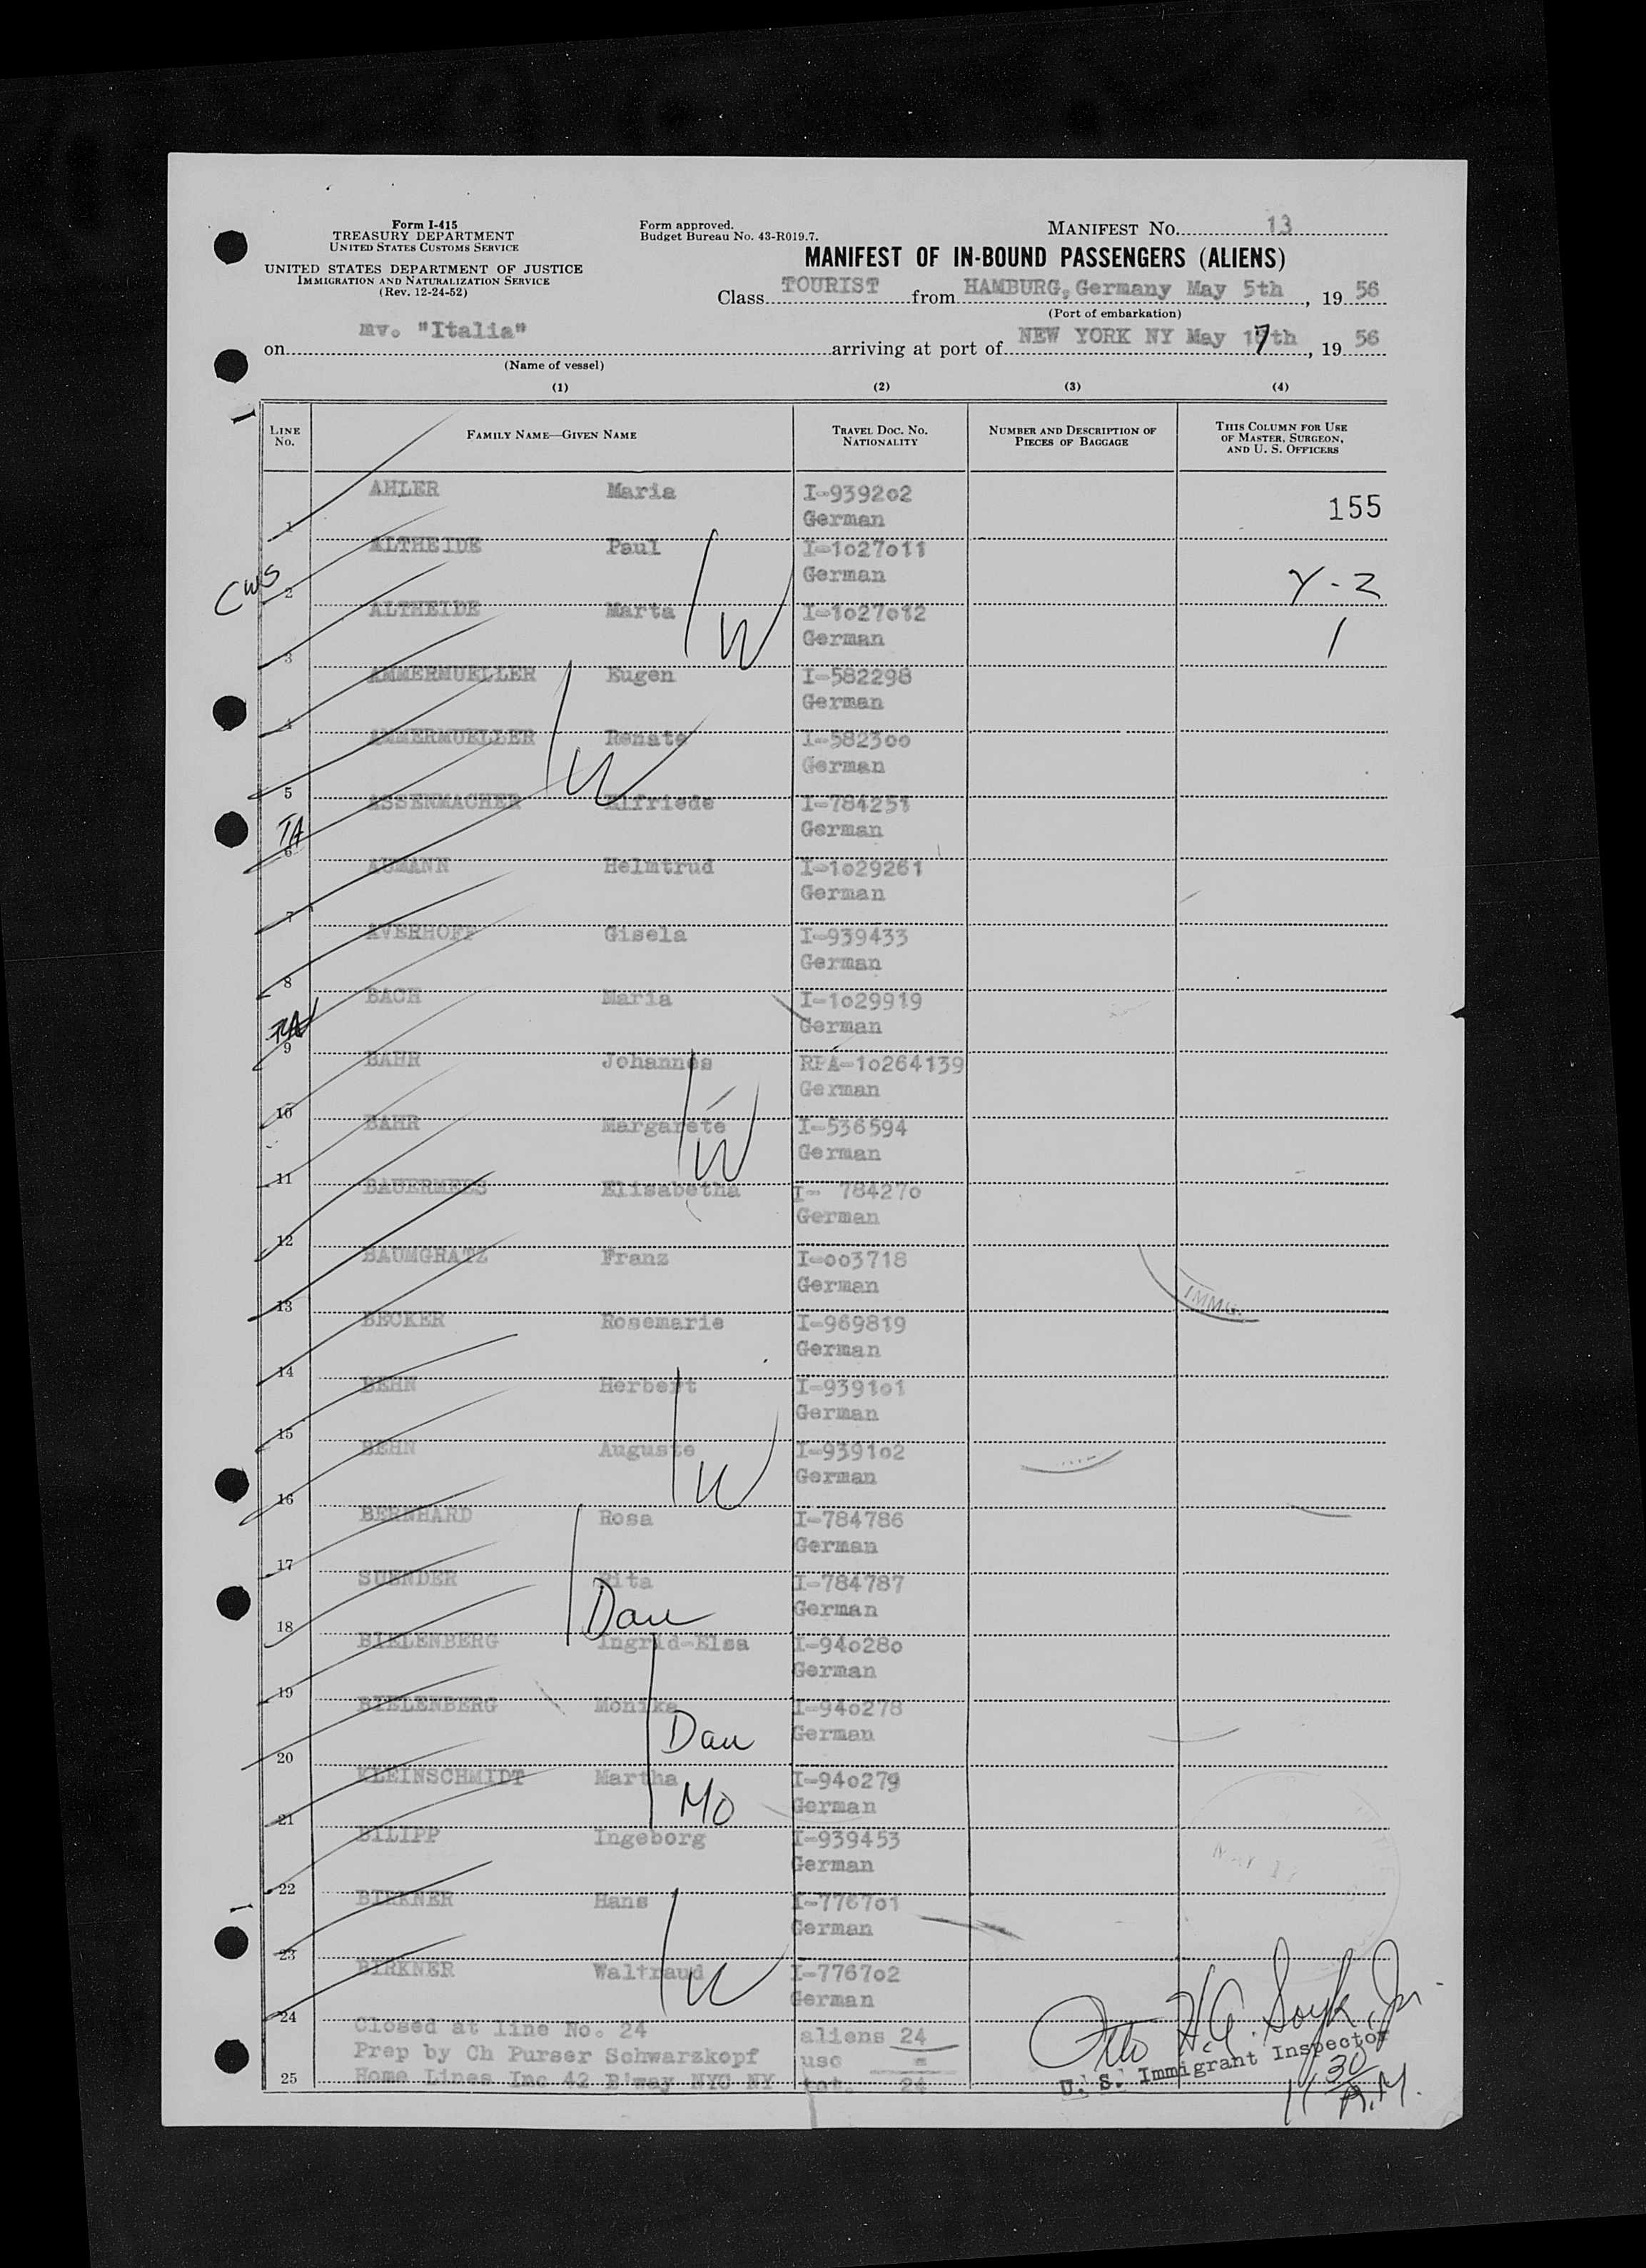 Form I-415
TREASURY DEPARTMENT
UNITED STATES CUSTOMS SERVICE
UNITED STATES DEPARTMENT OF JUSTICE
IMMIGRATION AND NATURALIZATION SERVICE
(Rev. 12-24-52)
Form approved.
Budget Bureau No. 43-R019.7.
MANIFEST NO. 13
MANIFEST OF IN-BOUND PASSENGERS (ALIENS)
Class TOURIST from HAMBURG, Germany May 5th, 19 56
(Port of embarkation)
on mv. "Italia" arriving at port of NEW YORK NY May 17th, 19 56
(Name of vessel)
(1) (2) (3) (4)
LINE No. FAMILY NAME—GIVEN NAME TRAVEL DOC. NO. NATIONALITY NUMBER AND DESCRIPTION OF PIECES OF BAGGAGE THIS COLUMN FOR USE OF MASTER, SURGEON, AND U. S. OFFICERS
AHLER Maria I-939202 155
1 German
ALTHEIDE Paul I-1027011
CWS 2 German Y-2
ALTHEIDE Marta I-1027012 /
3 W German
AMMERMUELLER Eugen I-582298
4 German
AMMERMUELLER Renate I-582300
5 W German
ASSENMACHER Elfriede I-784251
TA 6 German
AUMANN Helmtrud I-1029261
7 German
AVERHOFF Gisela I-939433
8 German
BACH Maria I-1029919
9 German
BAHR Johannes RPA-10264139
10 German
BAHR Margarete I-536594
11 W German
Elisabetha I- 784270
12 German
BAUMGRATZ Franz I-003718
13 German IMMG.
BECKER Rosemarie I-969819
14 German
BEHN Herbert I-939101
15 German
BEHN Auguste I-939102
16 W German
BERNHARD Rosa I-784786
17 German
SUENDER Rita I-784787
18 Dau German
BIELENBERG Ingrid-Elsa I-940280
19 German
BIELENBERG Monika I-940278
20 Dau German
KLEINSCHMIDT Martha I-940279
21 MO German
BILIPP Ingeborg I-939453
22 German
BIRKNER Hans I-776701
23 German
BIRKNER Waltraud I-776702
24 W German
Closed at line No. 24 aliens 24
Prep by Ch Purser Schwarzkopf usc =
25 Home Lines Inc 42 B'way NYC NY tot. 24
Otto H.G. Soyk, Jr.
U. S. Immigrant Inspector
11 30 A.M.